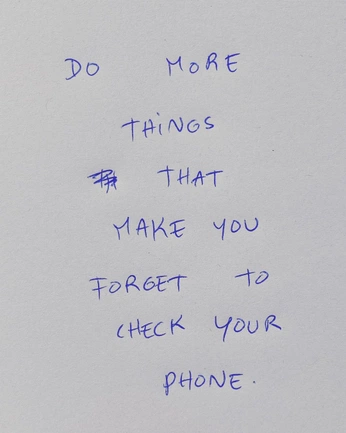 DO MORE
THiNGS
THAT
MAKE YOU
FORGET TO
CHECK YOUR
PHONE.